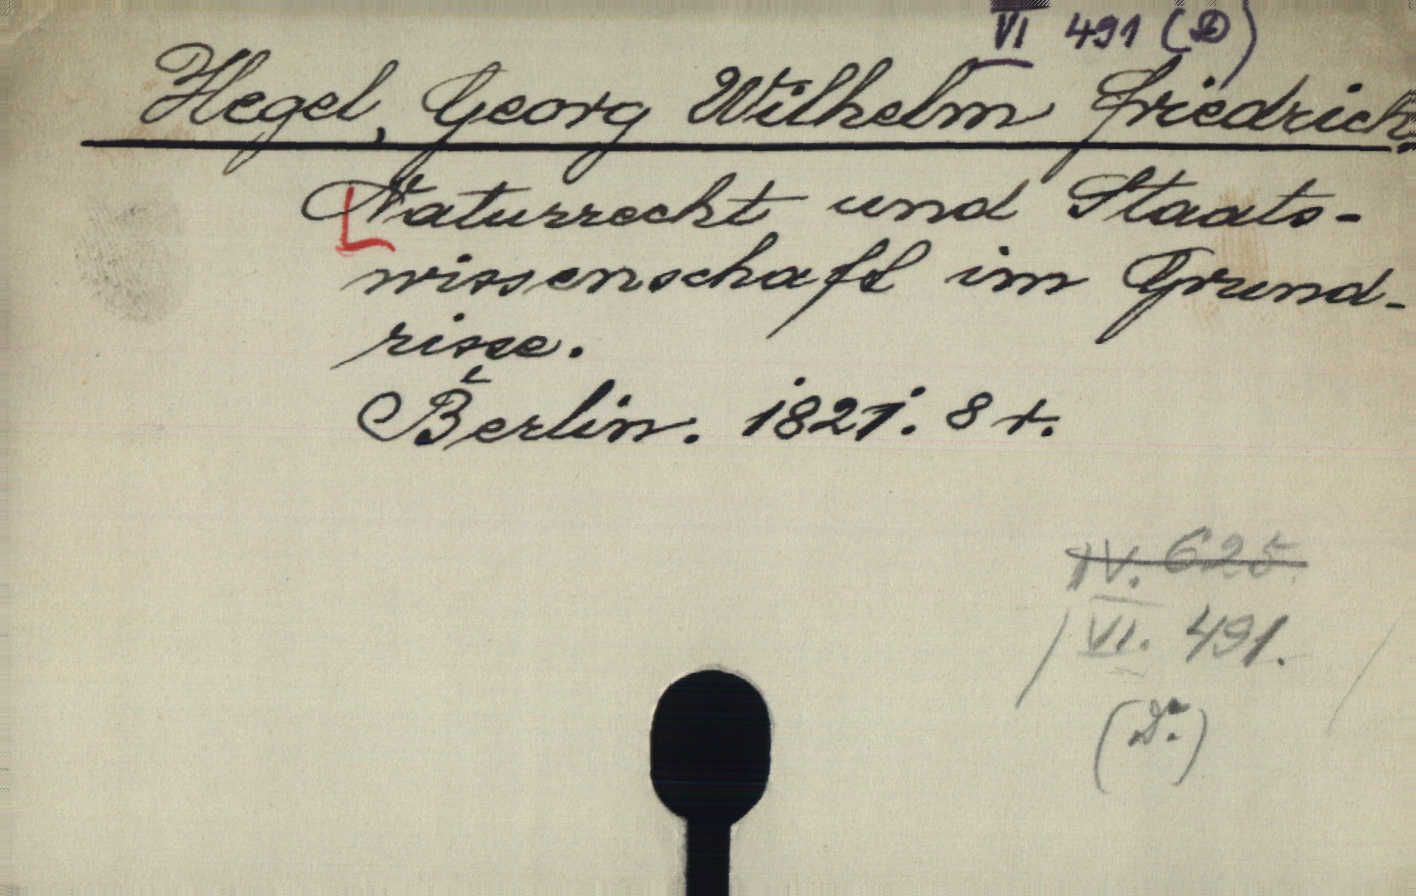 VI 491 (D)
Hegel, Georg Wilhelm Friedrich.
Naturrecht und Staats-
wissenschaft im Grund-
risse.
Berlin. 1821. 8 r.
IV. 625.
VI. 491.
(D.)